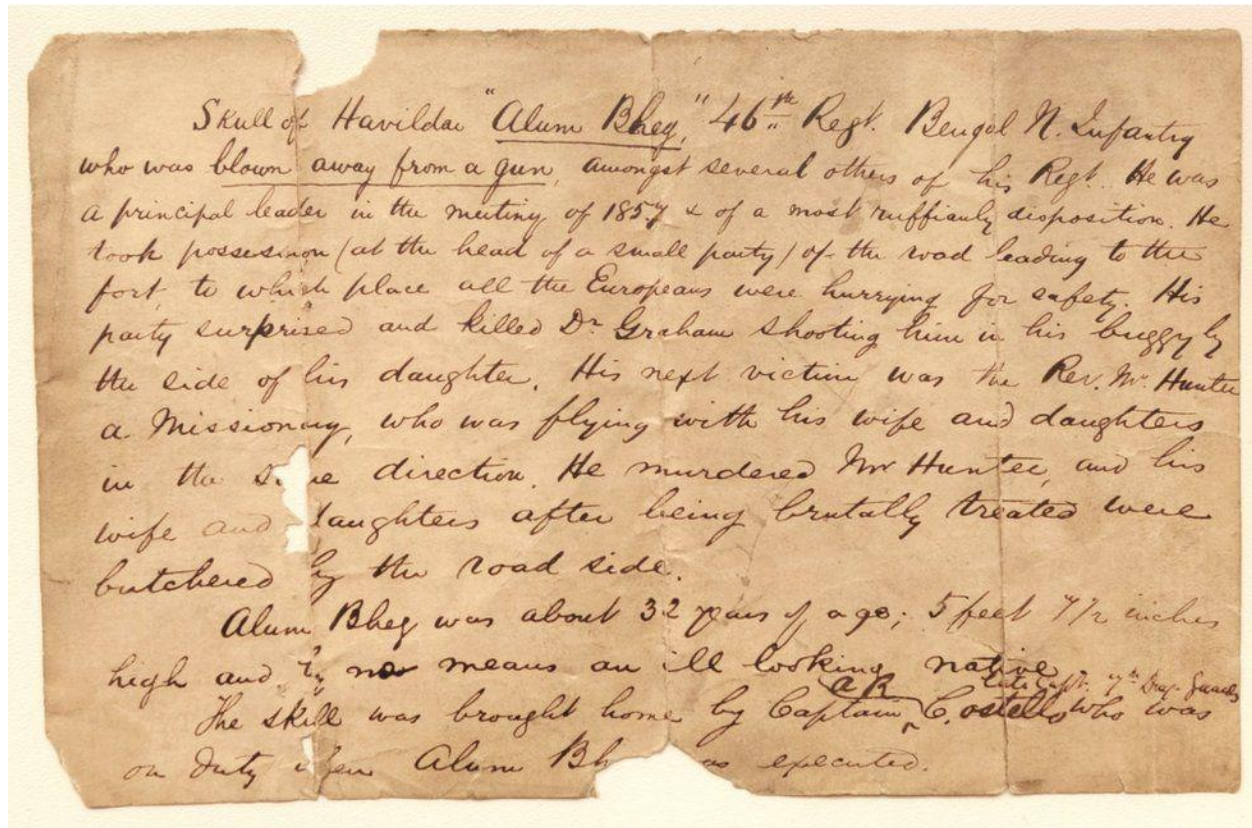 Skull of Havildar "Alum Bheg," 46th Regt. Bengal N. Infantry
who was blown away from a gun, amongst several others of his Regt. He was
a principal leader in the mutiny of 1857 & of a most ruffianly disposition. He
took possession (at the head of a small party) of the road leading to the
fort, to which place all the Europeans were hurrying for safety. His
party surprised and killed Dr. Graham shooting him in his buggy by
the side of his daughter. His next victim was the Rev. Mr. Hunter
a Missionary, who was flying with his wife and daughters
in the same direction. He murdered Mr Hunter, and his
wife and daughters after being brutally treated were
butchered by the road side.
Alum Bheg was about 32 years of age; 5 feet 7 1/2 inches
high and by no means an ill looking native
The skull was brought home by Captain AR Costello late Capt. 7th Drag. Guards who was
on duty when Alum Bh as executed.